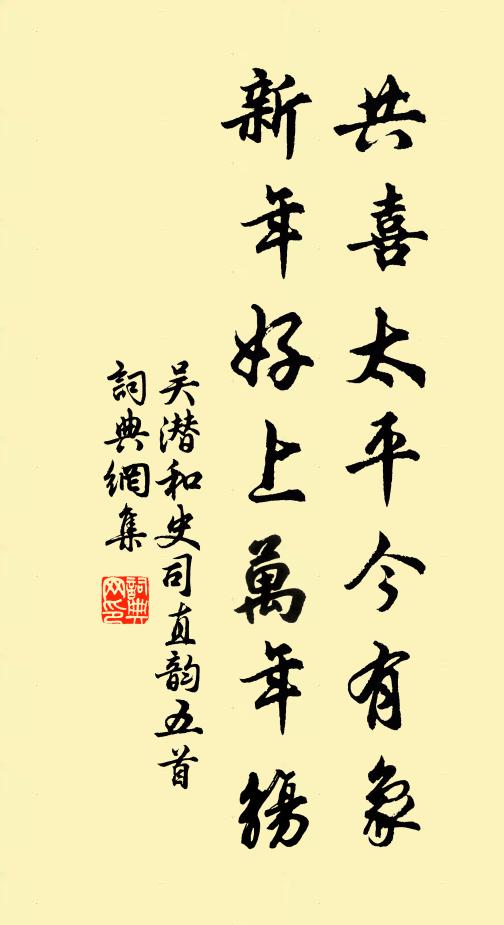 共喜太平今有象
新年好上萬年觴
吴潜和史司直韵五首
詞典網集
詞典
网印